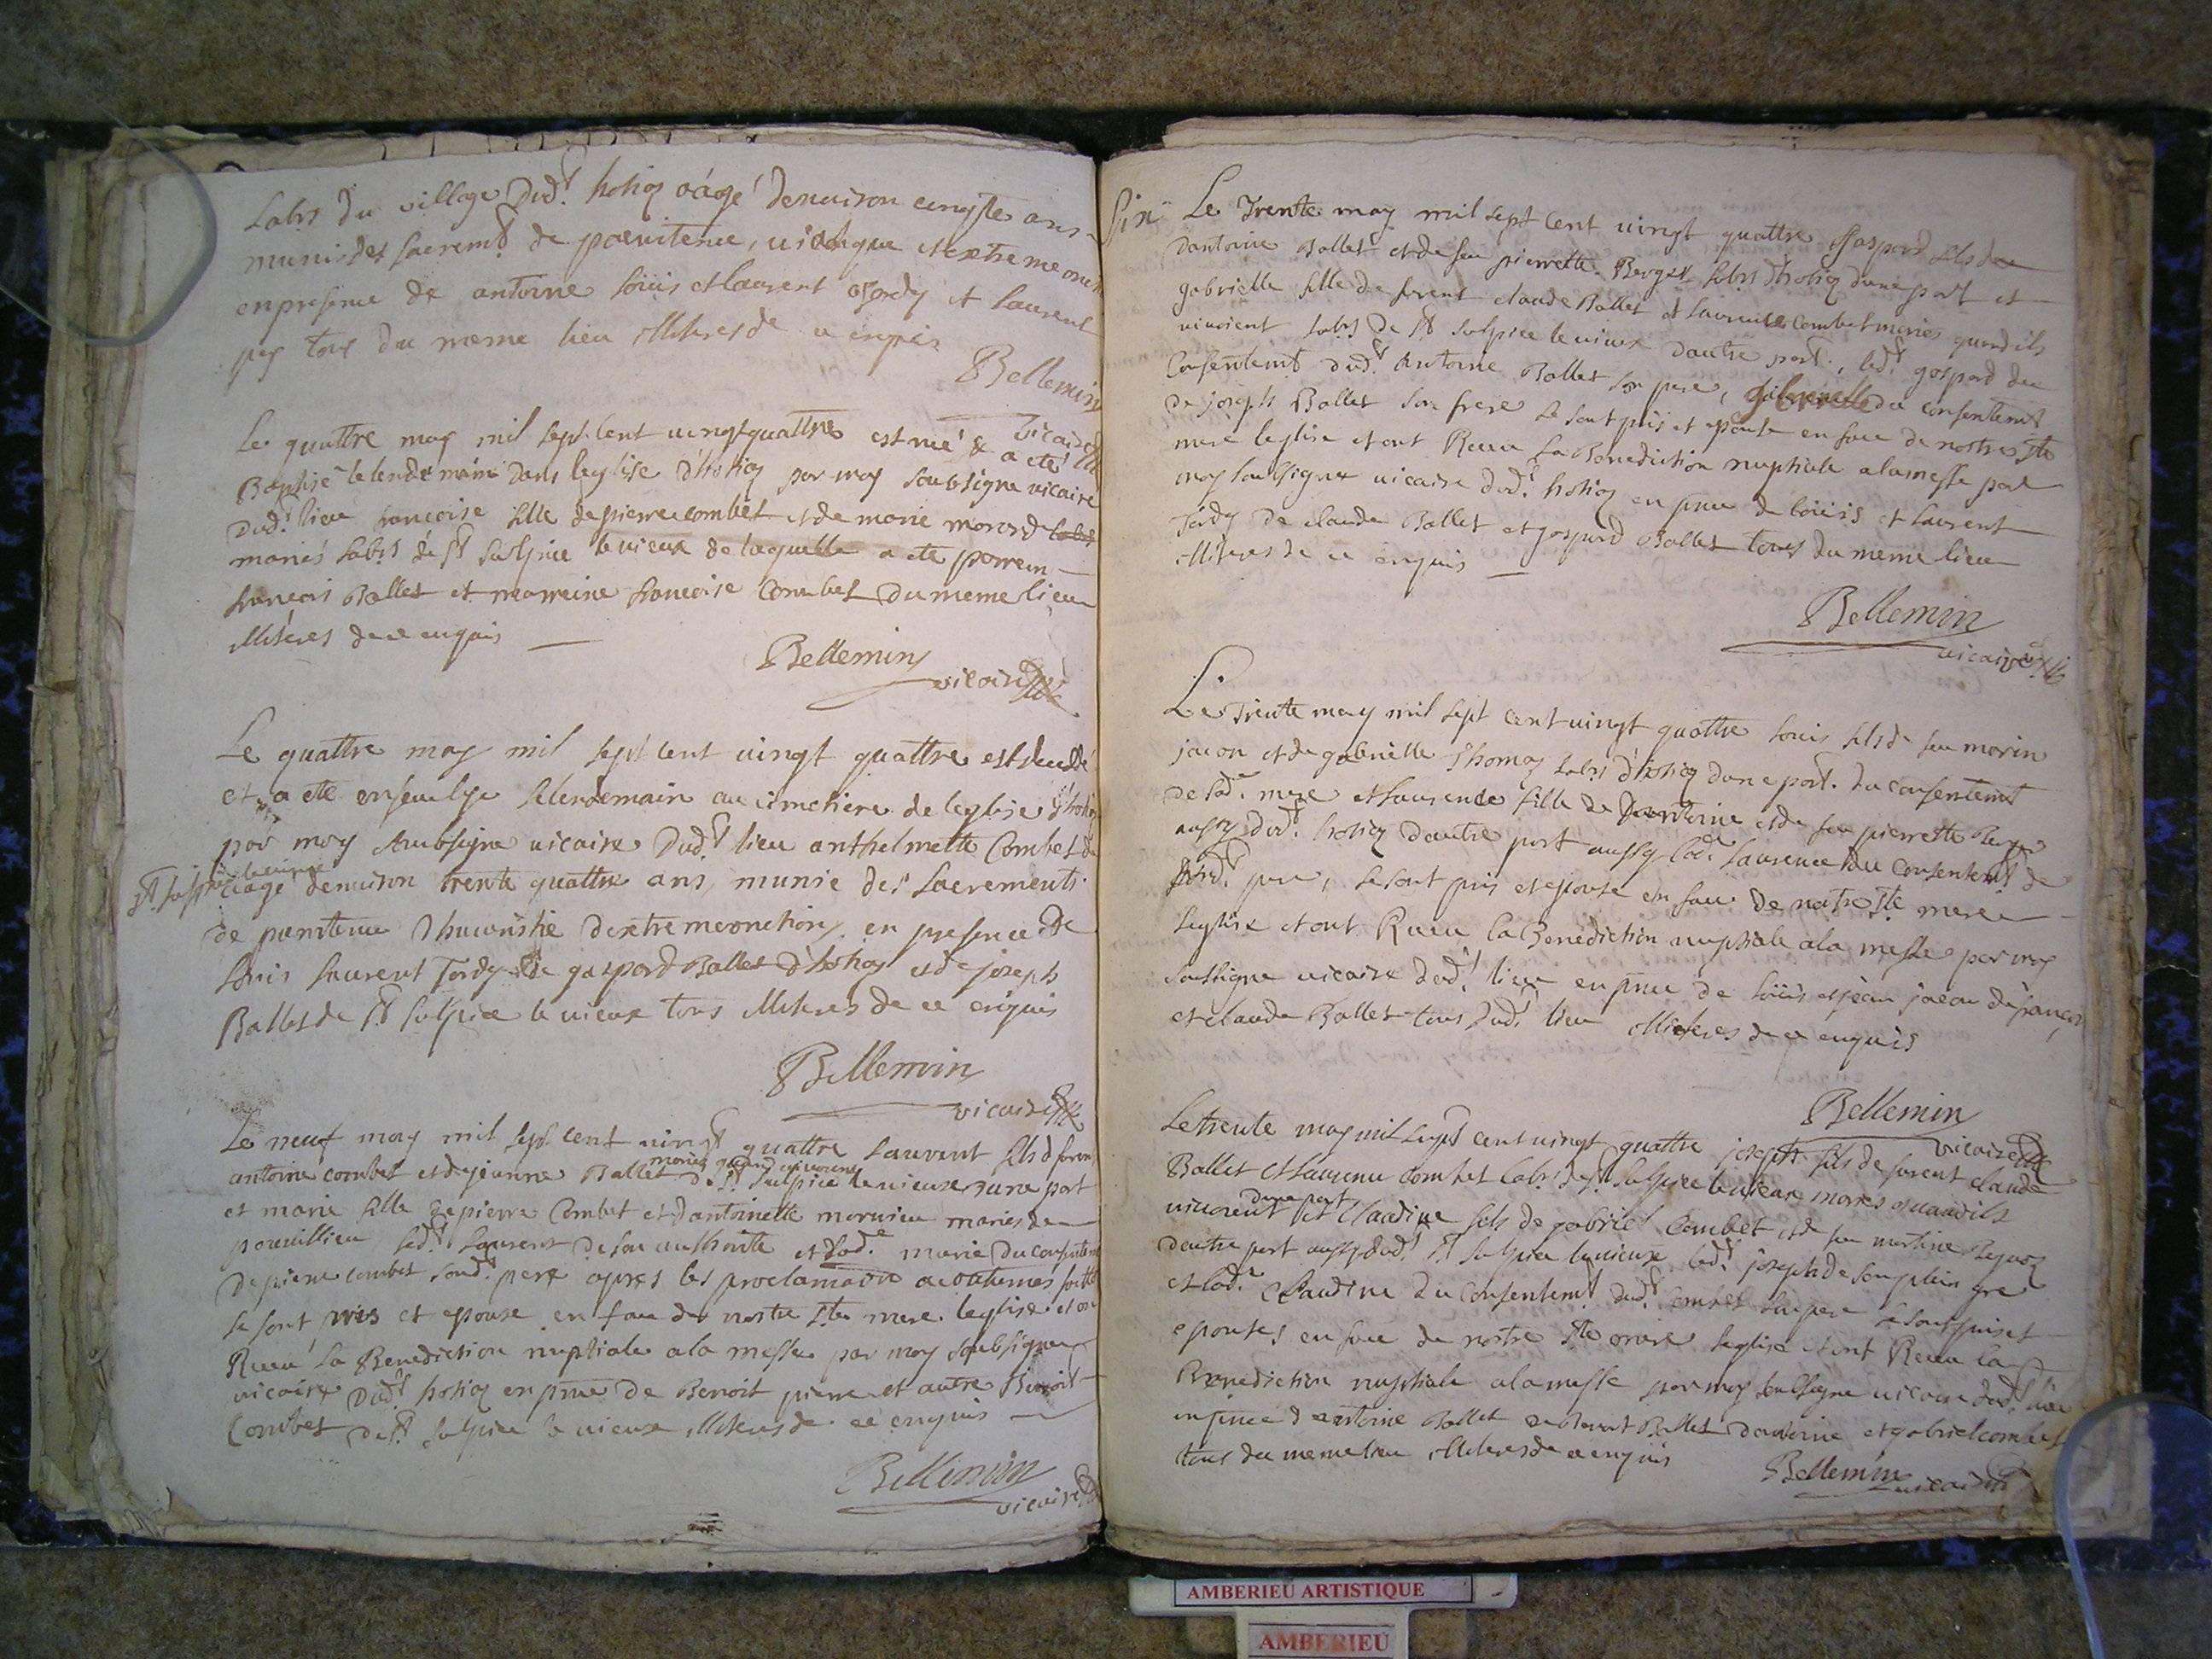 Labrs du village dud.t hotiõ aâgé denuiron cinqte ans
munis des sacremt de poenitence, uiatique et extreme onct
en presence de antoine loüis et laurent Tordy et laurent
tous du meme lieu illiteres de ce enquis
Bellemin
vicaire
Le quattre may mil sept cent uingt quattre est née & a ete
Baptisé le lendemain dans leglise d'hotiõ par moy soubsigne uicaire
dud.t lieu francoise fille de pierre combet et de marie morard
mariés labrs de st sulpice le uieux de laquelle a ete parrein
francois Ballet et marreine francoise Combet du meme lieu
illiteres de ce enquis
Bellemin
vicaire
Le quattre may mil sept cent uingt quattre est decedé
et a ete enseuelye le lendemain au cimetiere de leglise d'hotiõ
par moy soubsigne uicaire dud.t lieu anthelmette Combet de
st sulpice le uieux
eage denuiron trente quattre ans, munie des sacrements
de penitence dheucaristie dextremeonction en presence de
louis laurent Tordy de gaspard Ballet d'hotiõ et de joseph
Ballet de st sulpice le uieux tous illiteres de ce enquis
Bellemin
vicaire
Le neuf may mil sept cent uingt quattre laurent fils de furent
mariés quand uiuoient
antoine combet et de jeanne Ballet de st sulpice le uieux dune part
et marie fille de pierre Combet et dantoinette mariés de
led.t laurent de son authorite et lad.e marie du consentemt
de pierre combet sond.t pere apres les proclamaõn acoutumes faittes
se sont pris et epouse en face de nostre ste mere leglise et ont
Receu la Benediction nuptiale a la messe par moy soubsigne
uicaire dud.t hotiõ en pnce de Benoit pierre et autre Benoit
Combet de st sulpice le uieux illiteres de ce enquis
Bellemin
vicaire
Le Trente may mil sept cent uingt quattre gaspard fils de
dantoine Ballet et de feu pierrette Berger labrs d'hotiõ dune part et
gabrielle fille de furent claude Ballet et laurence combet mariés quand ils
uiuoient labrs de st sulpice le uieux dautre part, led.t gaspard du
Consentemt dud.t Antoine Ballet son pere, gabrielle du consentemt
de joseph Ballet son frere se sont pris et epouse en face de nostre ste
mere leglise et ont Receu La Benediction nuptiale a la messe par
moy soubsigne uicaire dud.t hotiõ en pnce de loüis et laurent
Tordy de claude Ballet et gaspard Ballet tous du meme lieu
illiteres de ce enquis
Bellemin
uicaire
Le Trente may mil sept cent uingt quattre louis fils de feu marin
jacon et de gabrielle Thomas labrs d'hotiõ dune part du consentemt
de lad.e mere et laurence fille de dantoine et de feu pierrette Berger
aussy dud.t hotiõ dautre part aussy lad.e laurence du consentemt de
sond.t pere, se sont pris et epouse en face de notre ste mere
leglise et ont Receu la Benediction nuptiale a la messe par moy
soussigne uicaire dud.t lieu en pnce de loüis et jean jacon de francois
et claude Ballet tous dud.t lieu illiteres de ce enquis
Bellemin
vicaire
Le trente may mil sept cent uingt quattre joseph fils de furent claude
Ballet et laurence Combet labrs de st sulpice le uieux mariés quand ils
uiuoient dune part et Claudine fille de gabriel Combet et de feu martine
dautre part aussy dud.t st sulpice le uieux led.t joseph de son plein gre
et lad.e Claudine du Consentemt dud.t Combet son pere se sont pris et
epouses en face de nostre ste mere leglise et ont Receu la
Benediction nuptiale a la messe par moy soussigne uicaire dud.t lieu
en pnce d antoine Ballet Ballet dantoine et gabriel combet
tous du meme lieu illiteres de ce enquis
Bellemin
vicaire
AMBERIEU ARTISTIQUE
AMBERIEU